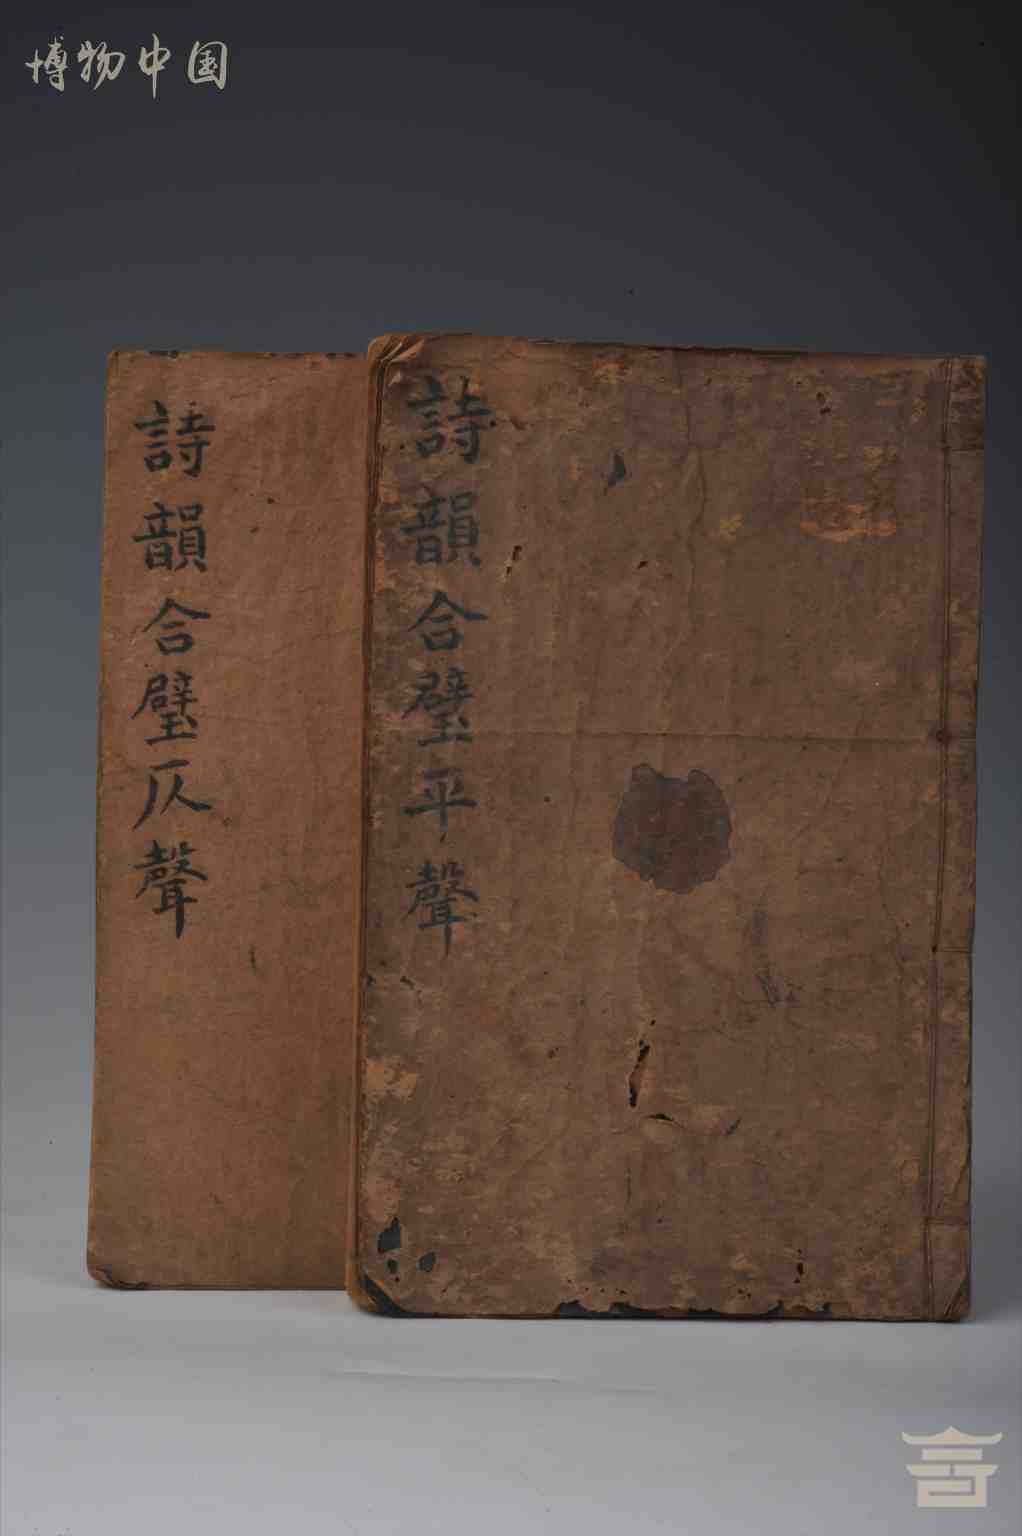 博物中国
詩韻合璧平聲
詩韻合璧仄聲